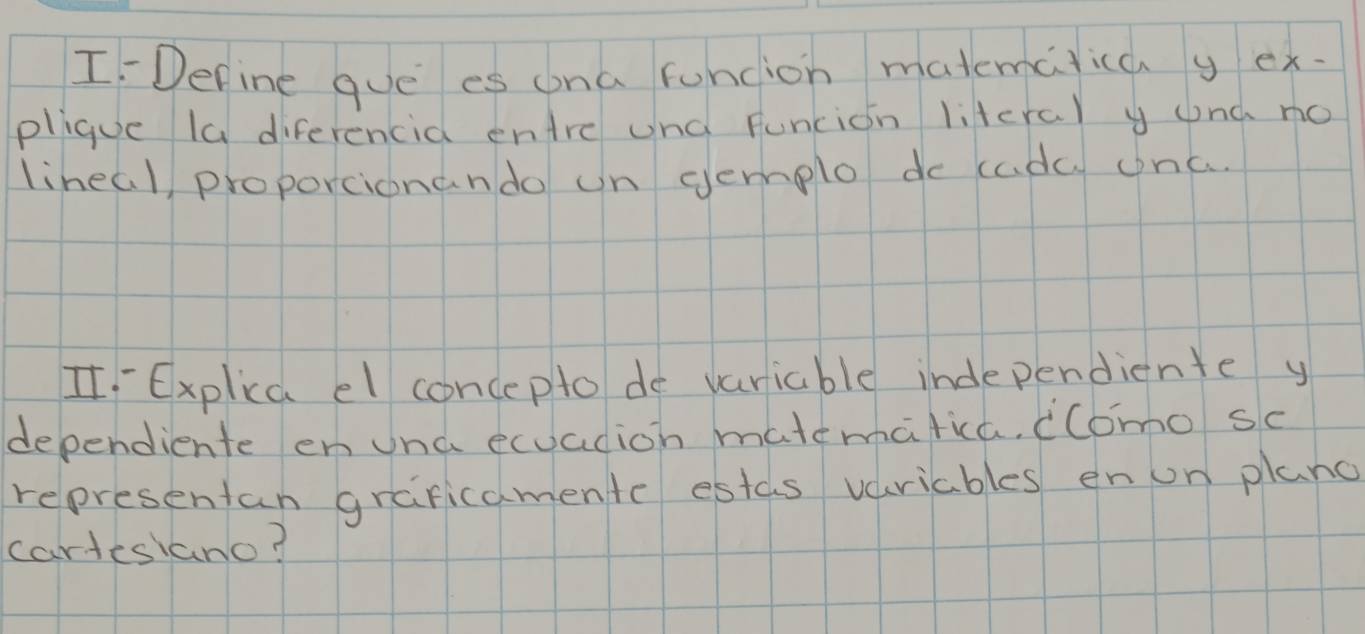 I.- Define qué es una función matemática y ex-
plique la diferencia entre una función literal y una no
lineal, proporcionando un ejemplo de cada una.
II.- Explica el concepto de variable independiente y
dependiente en una ecuación matemática. ¿Cómo se
representan gráficamente estas variables en un plano
cartesiano?